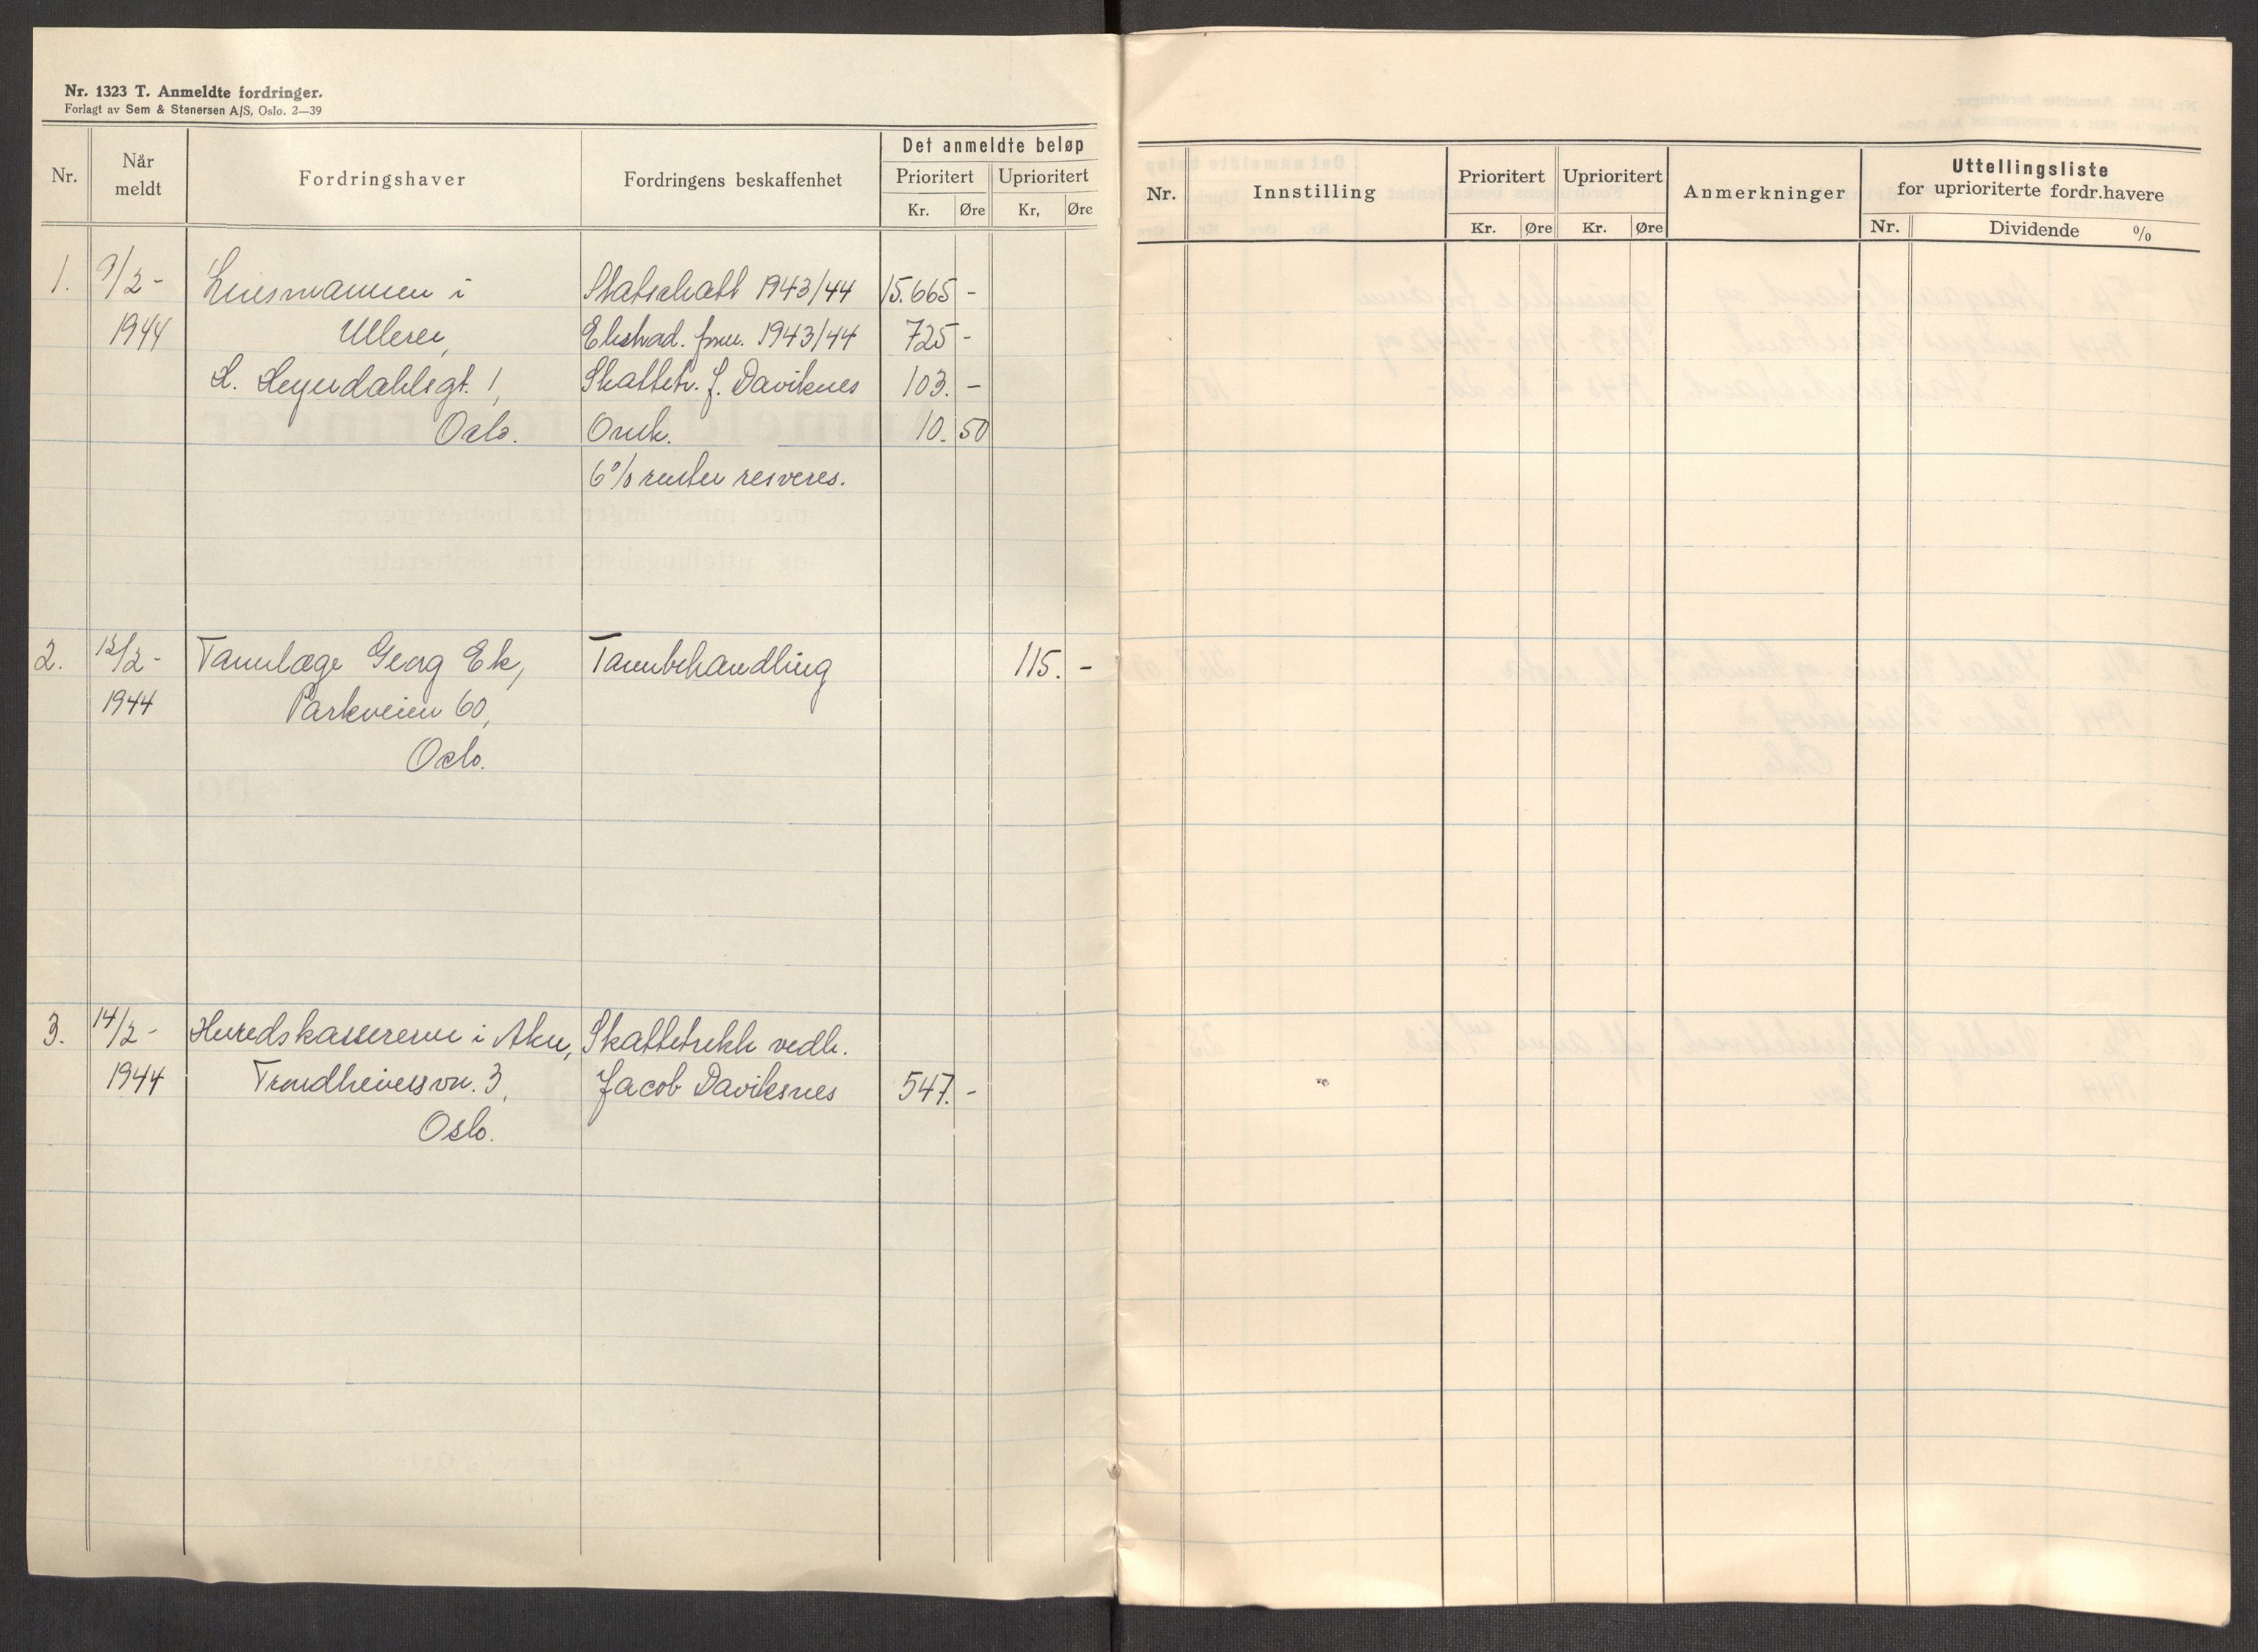 Nr. 1323 T. Anmeldte fordringer.
Forlagt av Sem & Stenersen A/S, Oslo. 2—39
Nr.
Når meldt
Fordringshaver
Fordringens beskaffenhet
Det anmeldte beløp
Prioritert
Uprioritert
Kr.
Øre
Kr,
Øre
1. 9/2- Lensmannen i Statsskatt 1943/44 15.665 -
1944 Ulleren, Ekstraord. form. 1943/44 725 -
H. Heyerdahlsgt. 1, Skattetr. f. Daviknes 103. -
Oslo. Omk. 10. 50
6% renter resveres.
2. 12/2- Tannlæge Georg Ek, Tannbehandling 115. -
1944 Parkveien 60,
Oslo.
3. 14/2- Herredskassereren i Aker, Skattetrekk vedk.
1944 Trondheimsvn. 3, Jacob Daviksnes 547. -
Oslo.
Nr.
Innstilling
Prioritert
Uprioritert
Kr.
Øre
Kr.
Øre
Anmerkninger
Uttellingsliste
for uprioriterte fordr.havere
Nr.
Dividende %